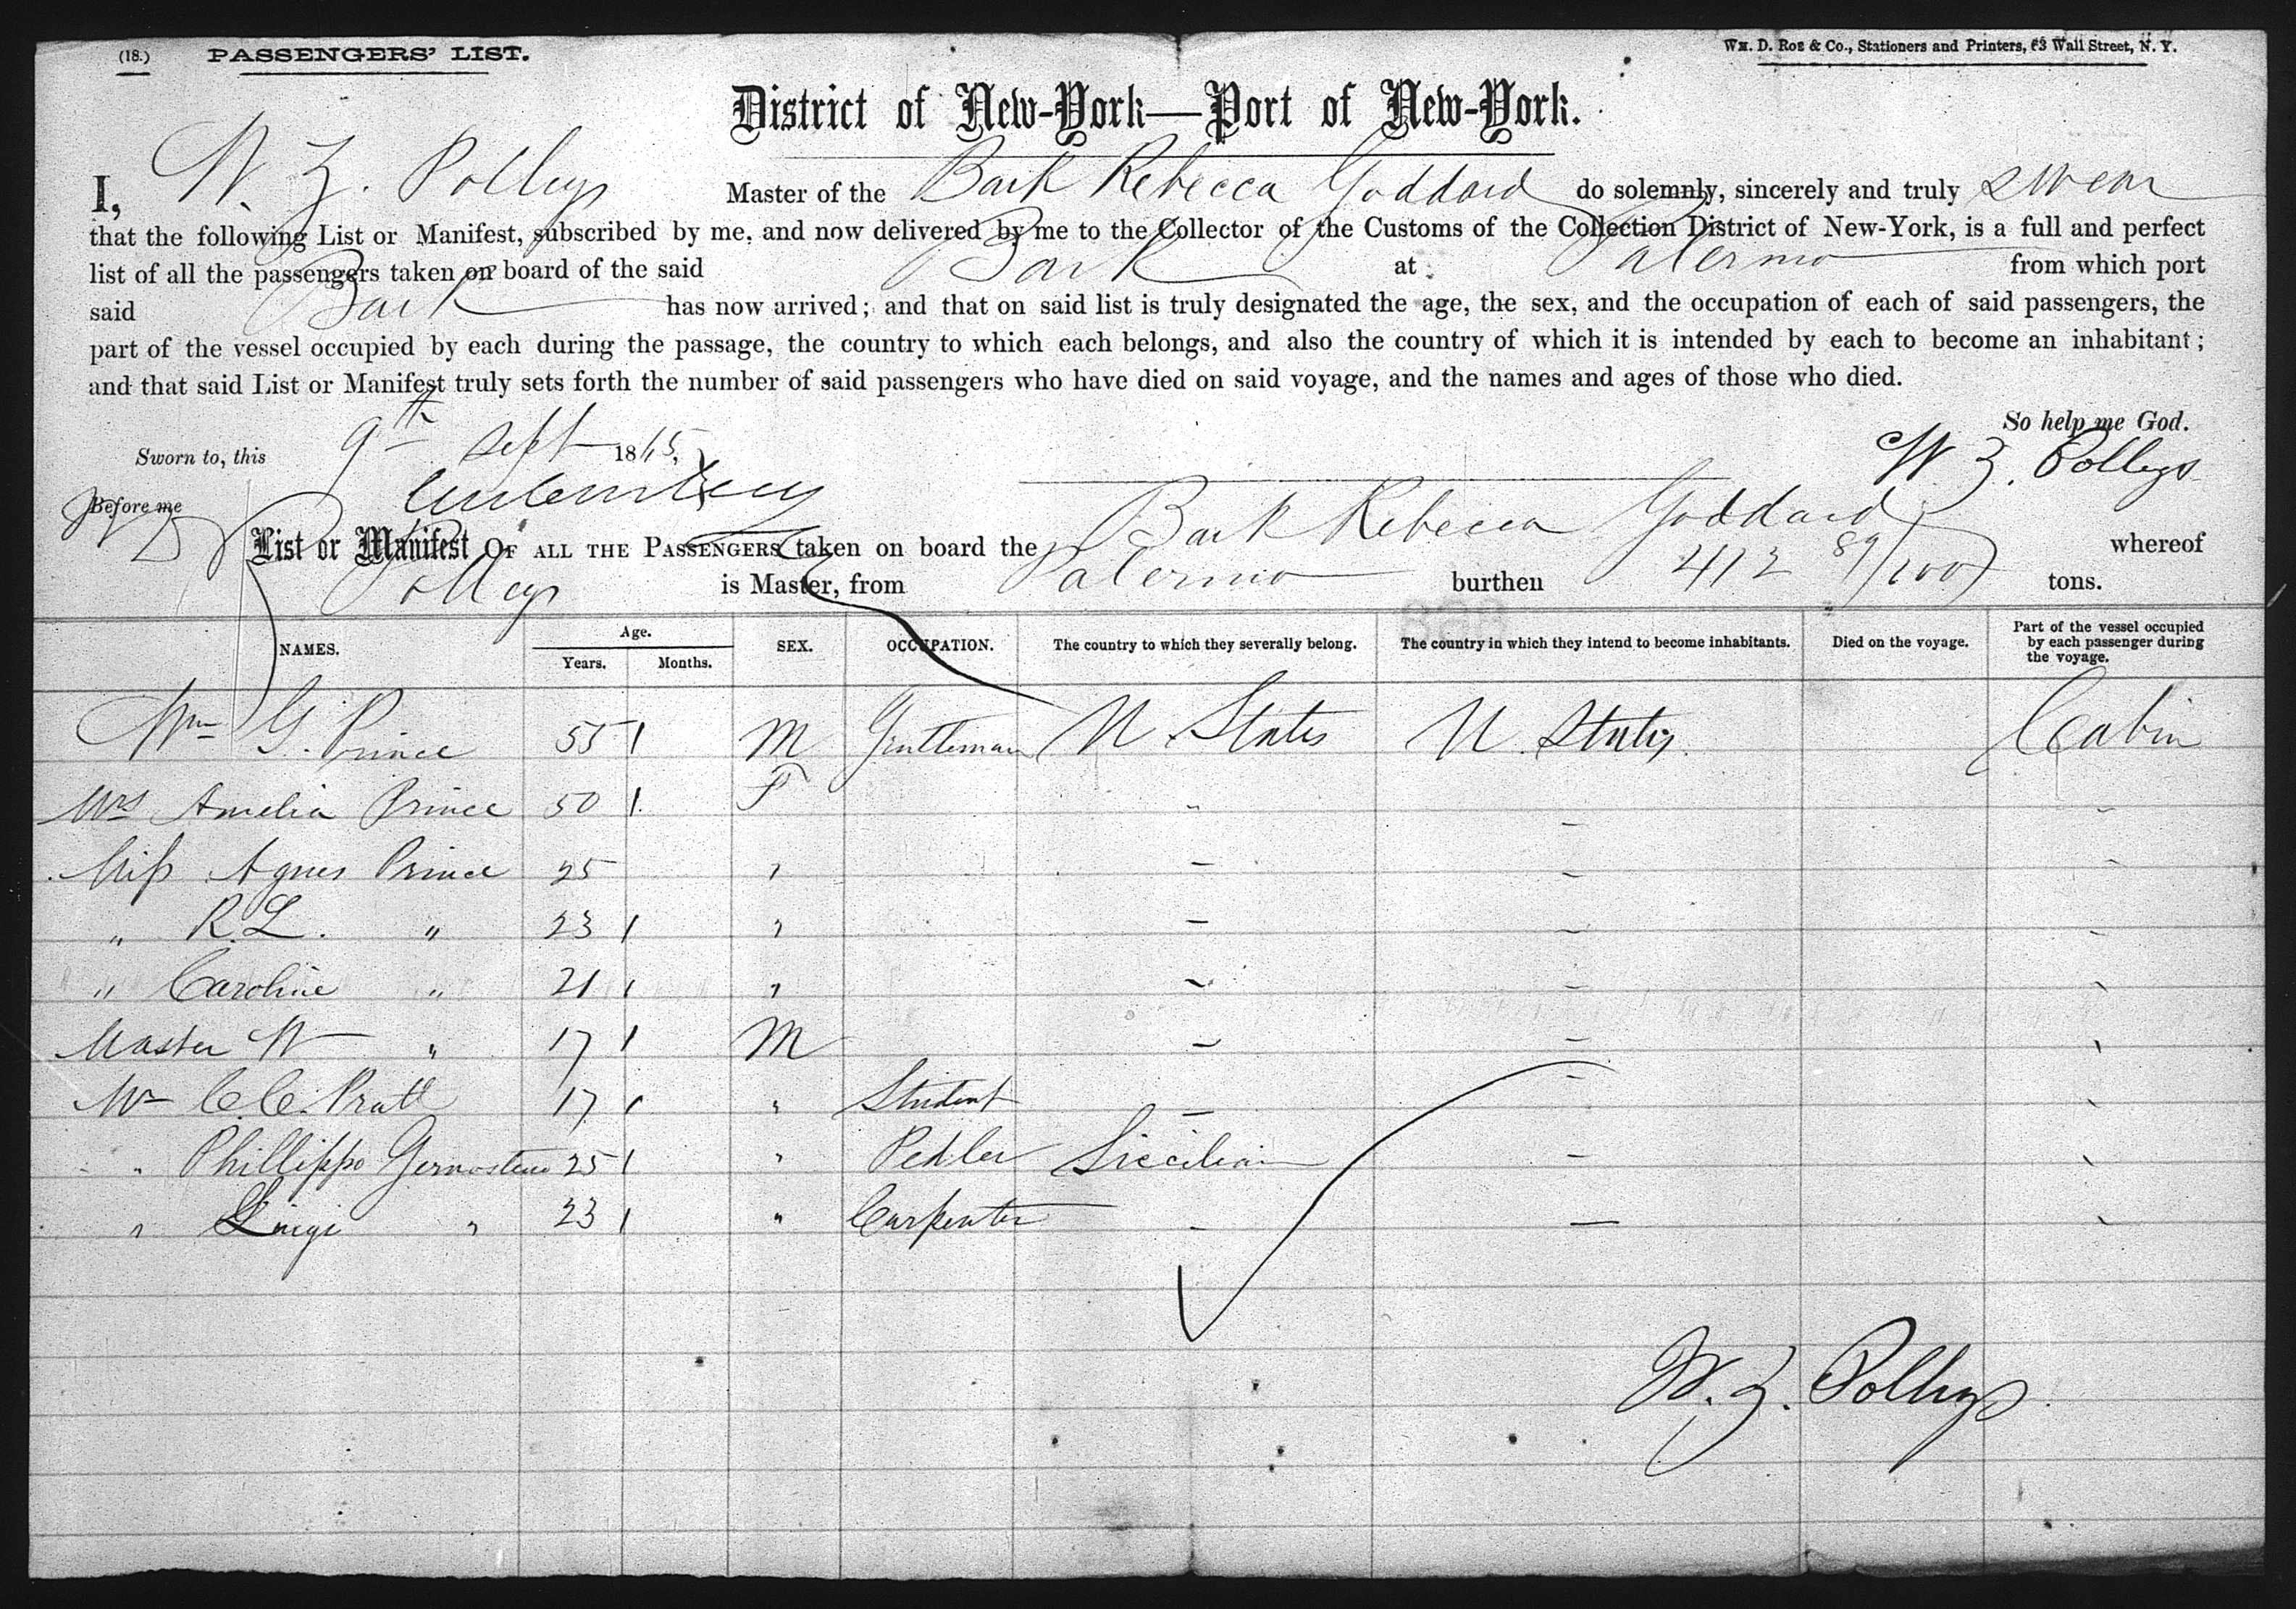 (18.) PASSENGERS' LIST. Wm. D. Roe & Co., Stationers and Printers, 63 Wall Street, N. Y.
District of New-York—Port of New-York.
I, W. Z. Polleys Master of the Bark Rebecca Goddard do solemnly, sincerely and truly swear
that the following List or Manifest, subscribed by me, and now delivered by me to the Collector of the Customs of the Collection District of New-York, is a full and perfect
list of all the passengers taken on board of the said Bark at Palermo from which port
said Bark has now arrived; and that on said list is truly designated the age, the sex, and the occupation of each of said passengers, the
part of the vessel occupied by each during the passage, the country to which each belongs, and also the country of which it is intended by each to become an inhabitant;
and that said List or Manifest truly sets forth the number of said passengers who have died on said voyage, and the names and ages of those who died.
So help me God.
Sworn to, this 9th Sept 1865, W Z. Polleys
Before me
List or Manifest OF ALL THE PASSENGERS taken on board the Bark Rebecca Goddard whereof
Polleys is Master, from Palermo burthen 412 89/100 tons.
NAMES. Age. Years. Months. SEX. OCCUPATION. The country to which they severally belong. The country in which they intend to become inhabitants. Died on the voyage. Part of the vessel occupied by each passenger during the voyage.
Wm G. Prince 55 M Gentleman U. States U. States Cabin
Mrs Amelia Prince 50 F " – –
Miss Agnes Prince 25 " – – –
" R. L. " 23 " – – –
" Caroline " 21 " – – "
Master W " 17 M – – "
Mr C. C. Pratt 17 " Student – – "
" Phillippo 25 " Pedler Siccilian – "
" Luigi " 23 " Carpenter – – "
W. Z. Polleys